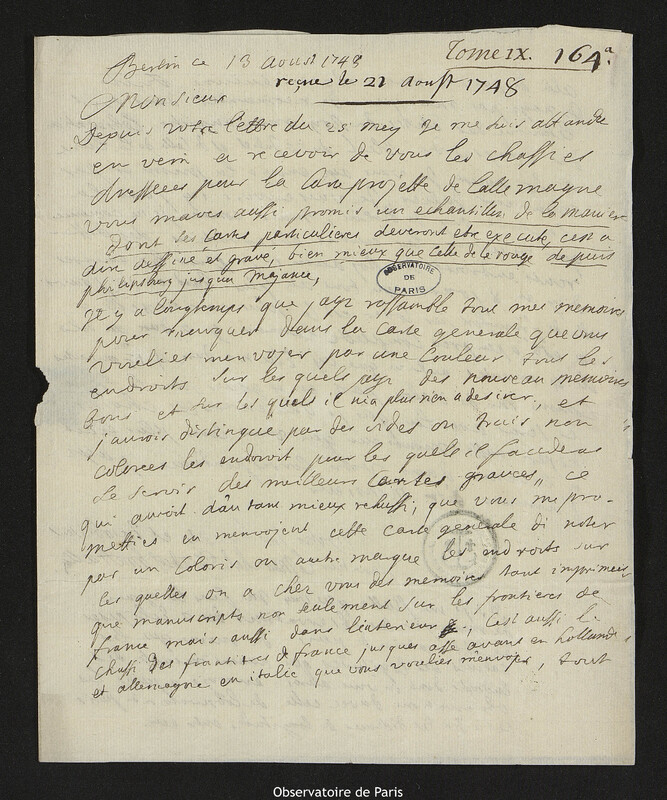 Tome IX. 164.a
Berlin ce 13 aoust 1748
reçue le 21 aoust 1748
Monsieur
Depuis votre lettre du 25 mey je me suis attandu
en vein a recevoir de vous les chassies
dressees pour la Carte projettée de l'allemagne
vous maves aussi promis un echantillon de la maniere
dont les Cartes particulieres deveront etre execute, c'est a
dire dessine et gravé, bien mieux que celle de le rouge depuis
philipsburg jusqu'an Mayance,
OBSERVATOIRE DE PARIS
Il y a longtemps que jaye rassamble tout mes memoires
pour marquer dans la Carte generale que vous
voulies menvojer par une Couleur tous les
endroits sur les quels jaye des nouveau memoires
bons et sur les quels il n'ia plus rien a desirer, et
j'aurois distingué par des vides ou trais non
colorees les endroit pour les quels il faudera
se servir des meilleurs Cartes gravees, ce
qui auroit dautant mieux reussi, que vous me pro-
metties en menvojent cette carte generale di noter
par un Coloris ou autre marque les endroits sur
les quelles on a chez vous des memoires tant imprimees
que manuscripts non seulement sur les frontieres de
france mais aussi dans l'enterieur, c'est aussi le
chassi des frontieres de france jusques asse avant en hollande
et allemagne en italie que vous voulies m'envojer, tout
Observatoire de Paris